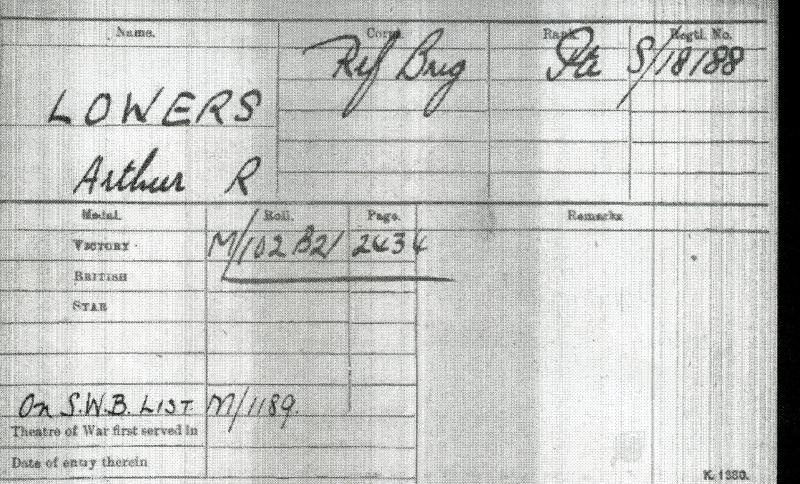 Name. Corps. Rank. Regtl. No.
Rif Brig Pte S/18188
LOWERS
Arthur R
Medal. Roll. Page. Remarks
VICTORY M/102 B21 2434
BRITISH
STAR
On S.W.B. LIST. M/1189.
Theatre of War first served in
Date of entry therein
K. 1380.